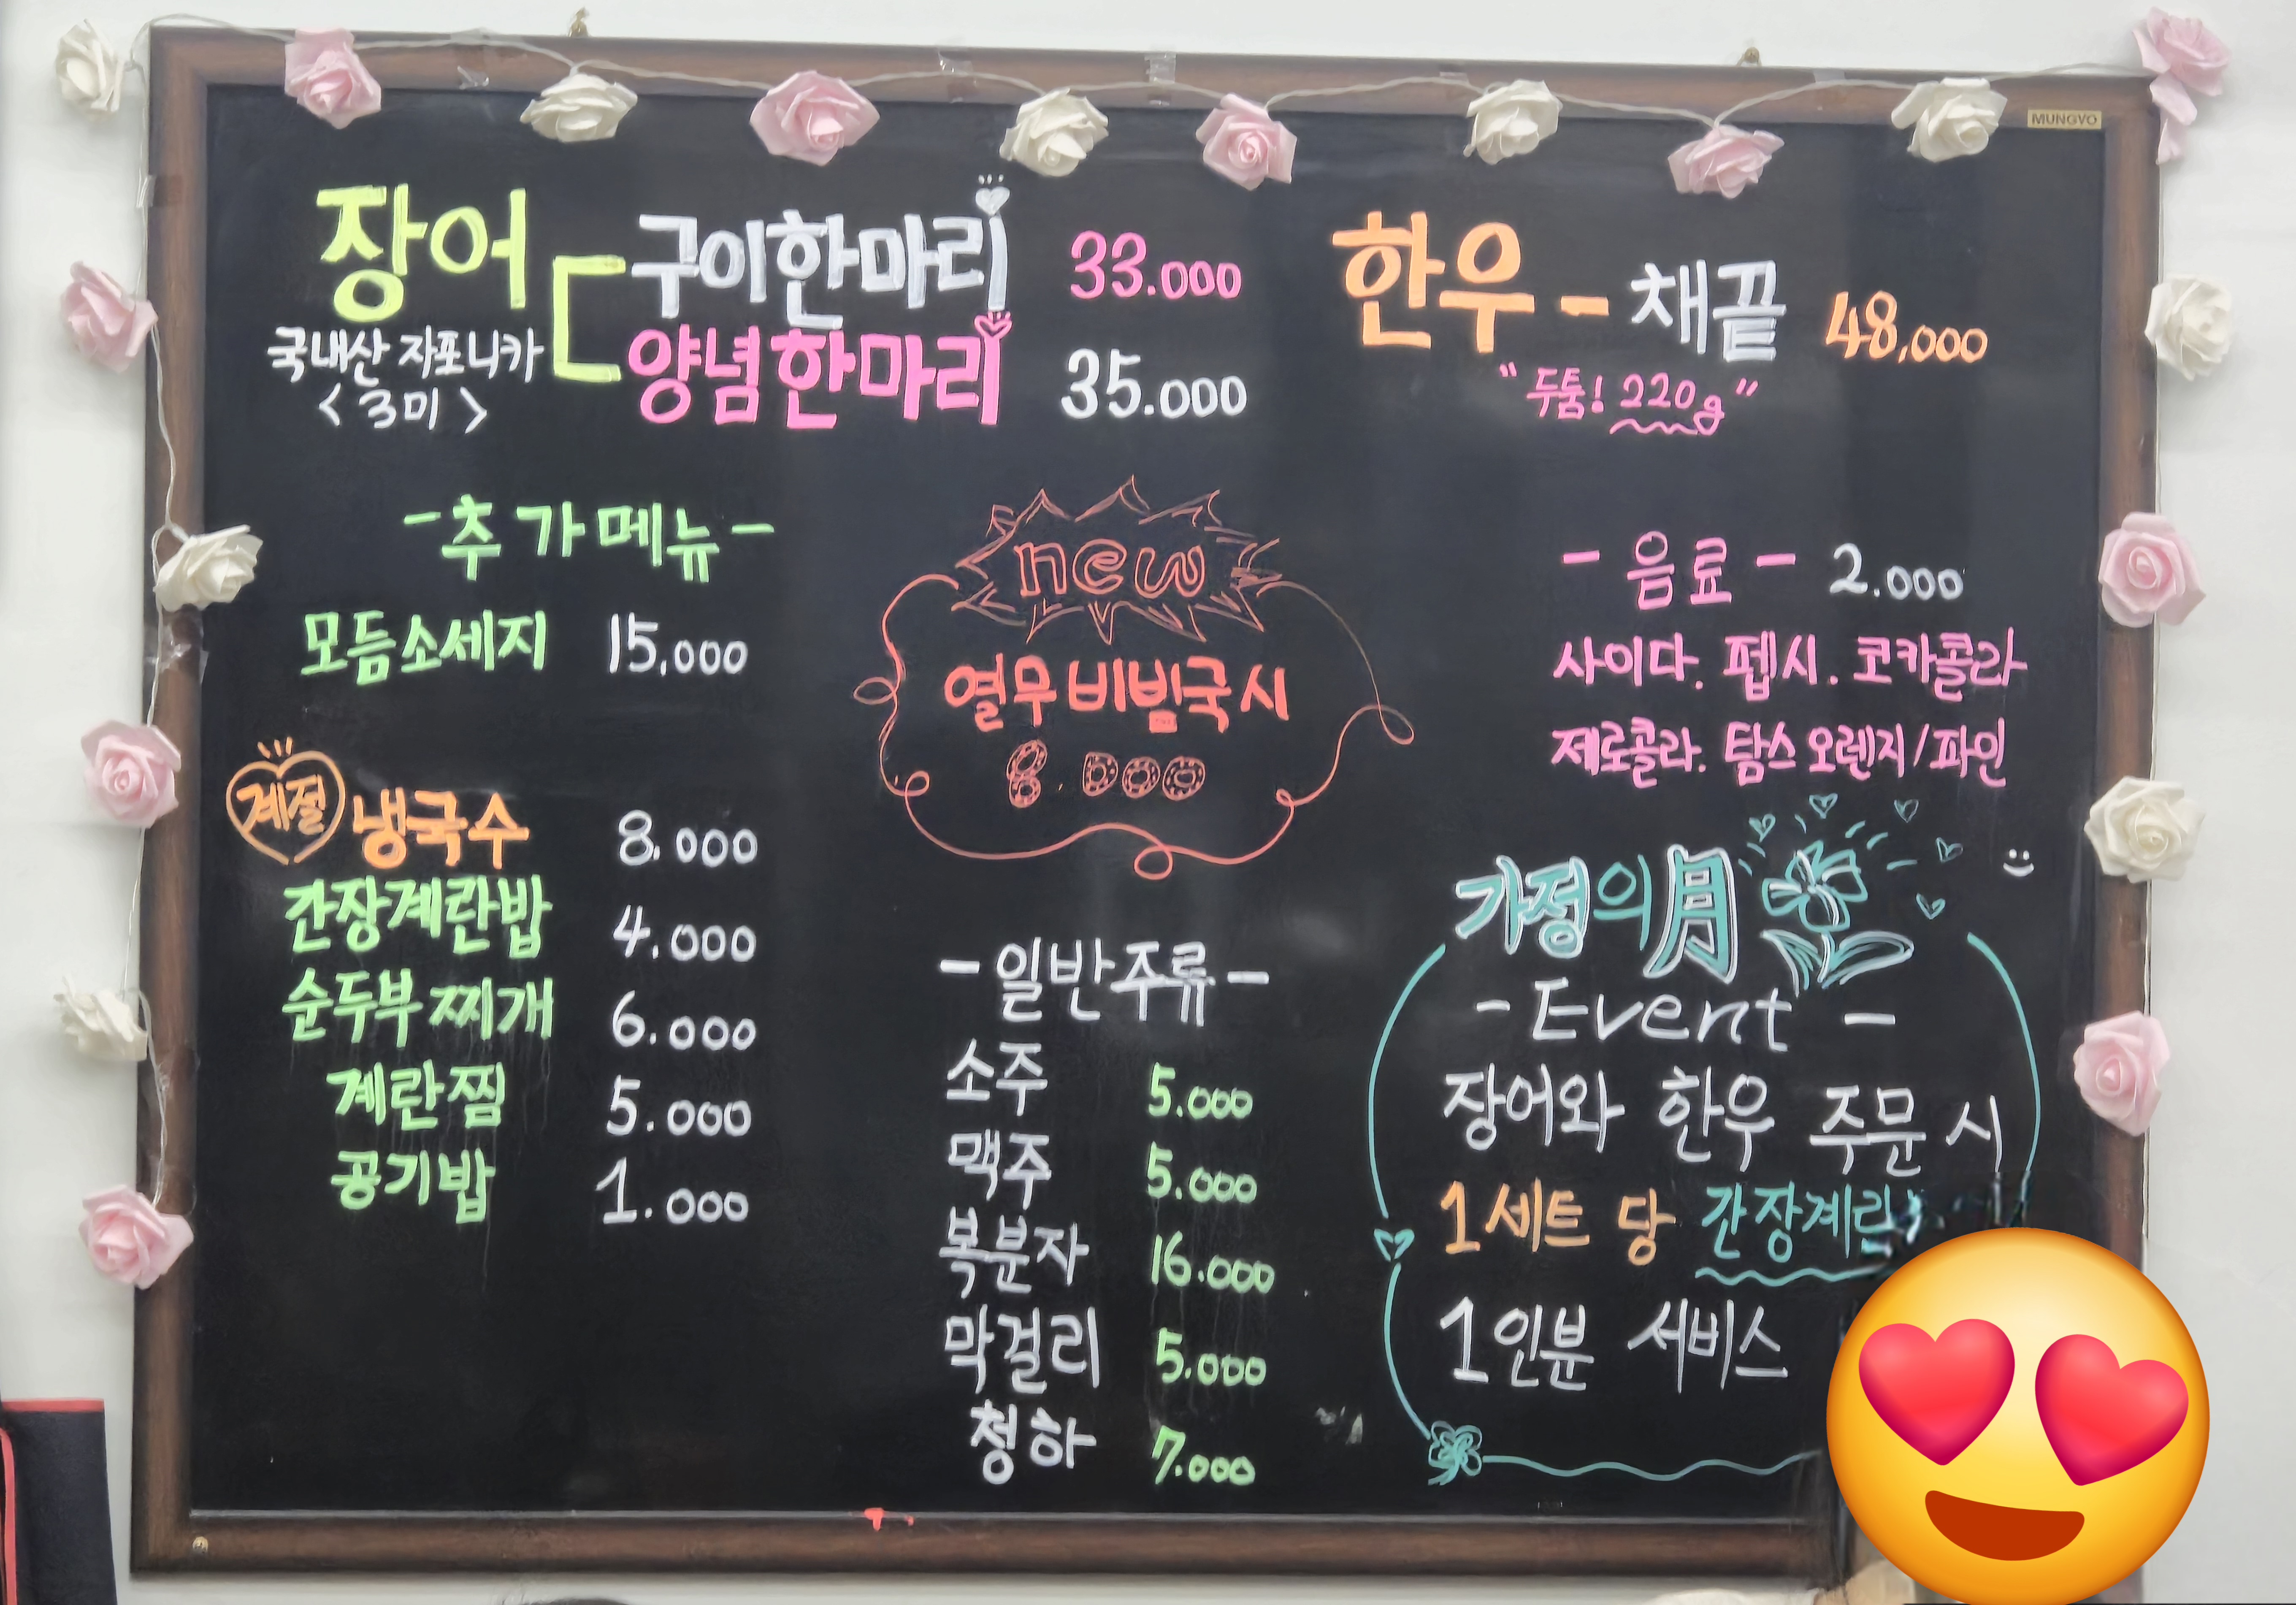 MUNGYO
장어
국내산 자포니카
<3미>
구이한마리 33.000
양념한마리 35.000
한우 - 채끝 48,000
"두툼! 220g"
- 추가메뉴 -
모듬소세지 15,000
계절 냉국수 8.000
간장계란밥 4.000
순두부찌개 6.000
계란찜 5.000
공기밥 1.000
new
열무비빔국시
8.000
- 일반주류 -
소주 5.000
맥주 5.000
복분자 16.000
막걸리 5.000
청하 7.000
- 음료 - 2.000
사이다. 펩시. 코카콜라
제로콜라. 탐스 오렌지/파인
가정의月
- Event -
장어와 한우 주문 시
1세트 당
1인분 서비스